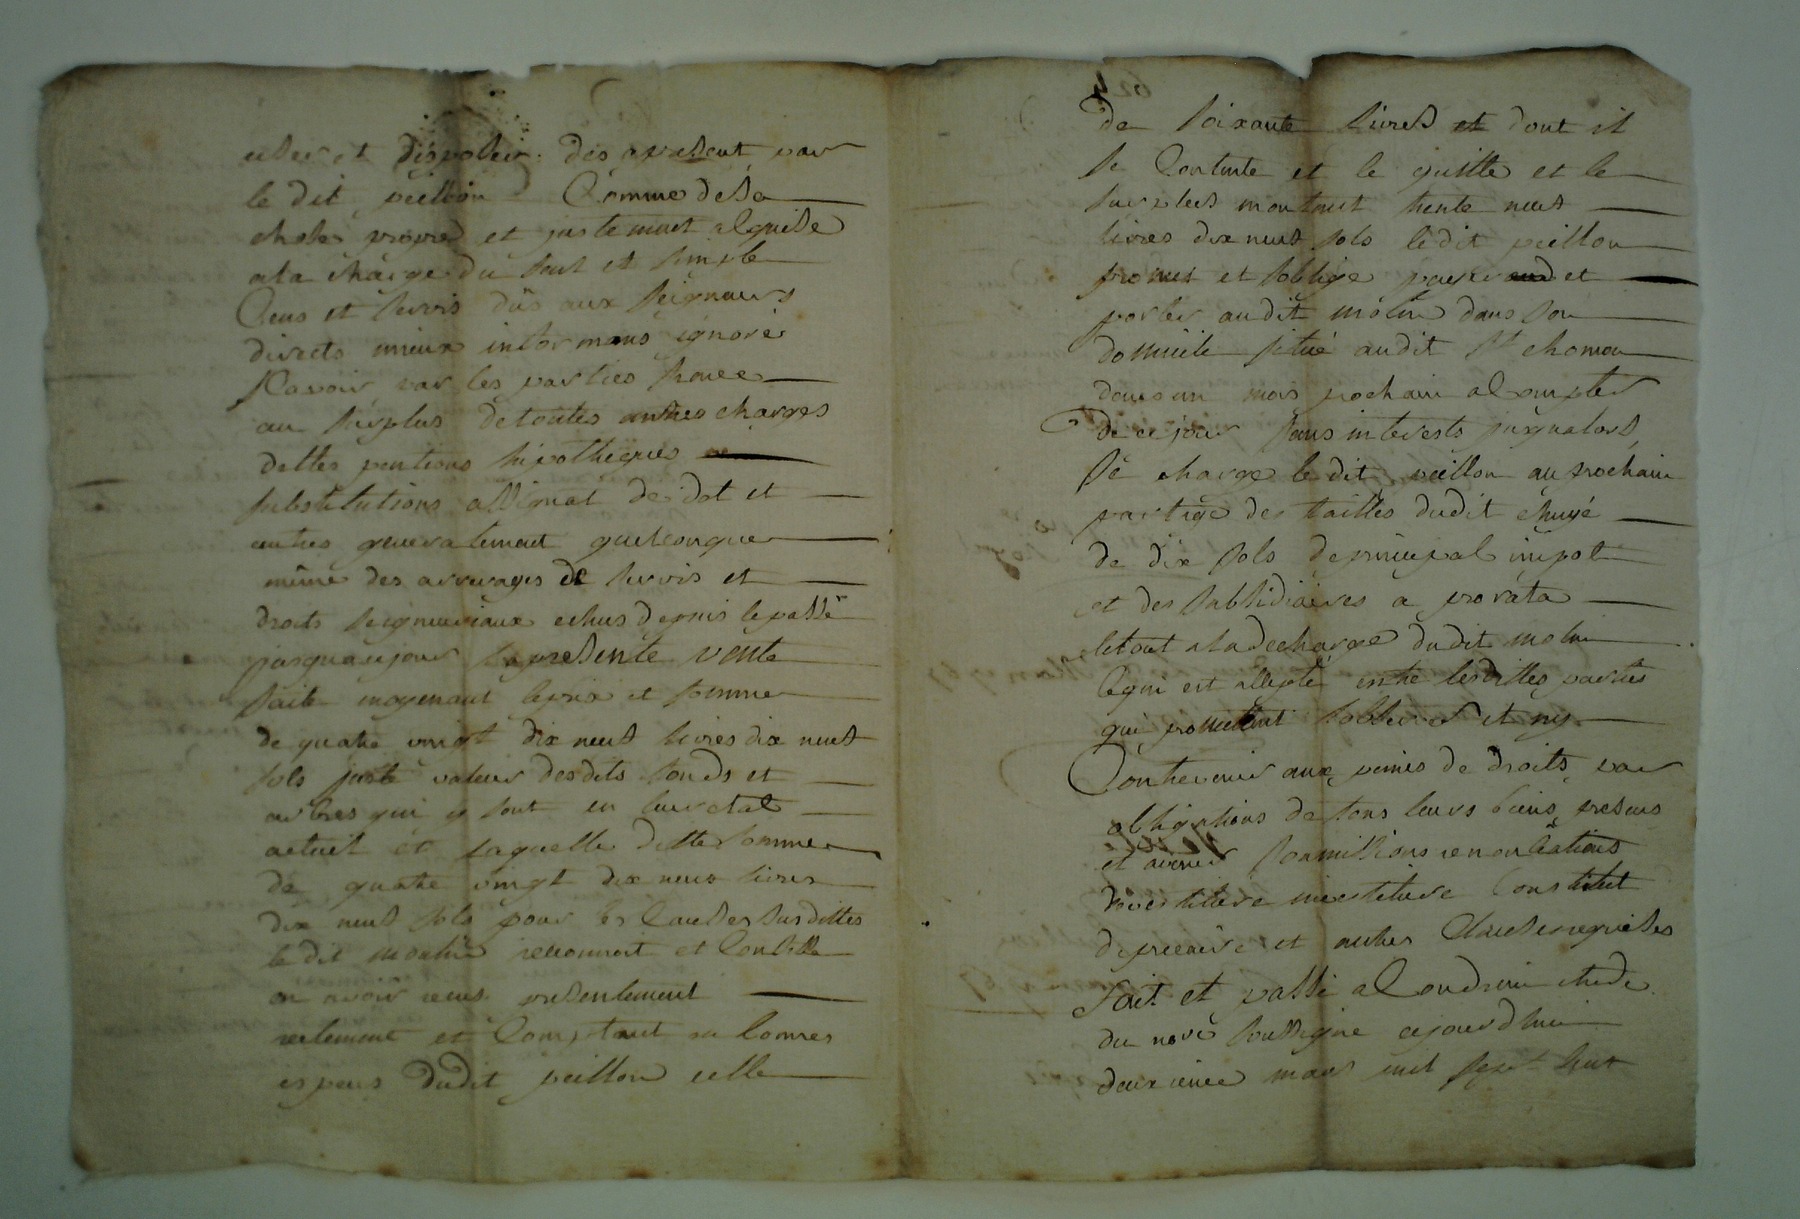 user et disposer des apresent par
le dit peillon Comme de sa
chose propre et justement acquise
ala charge du seul et simple
Cens et servis dûs aux seigneurs
directs mieux informans ignoré
scavoir par les parties franc
au surplus de toutes autres charges
dettes pentions hipotheques
substitutions assignat de dot et
autres generalement quelconque
même des arrerages de servis et
droits seigneuriaux echus depuis le passé
jusquaujour la presente vente
faite moyenant le prix et somme
de quatre vingt dix neuf livres dix neuf
sols juste valeur desdits fonds et
arbres qui y sont en leur etat
actuel et laquelle ditte somme
de quatre vingt dix neuf livres
dix neuf sols pour les Causes susdittes
le dit molin reconnoit et Confesse
en avoir reçus presentement
reelement et Comptant en bonnes
especes dudit peillon celle
624
de soixante livres et dont il
se Contente et le quitte et le
surplus montant trente neuf
livres dix neuf sols ledit peillon
promet et soblige payer et
porter audit molin dans son
domicile situé audit st chomon
dans un mois prochain a Compter
de ce jour sans interests jusqualors
se charge le dit peillon au prochain
partage des tailles dudit
de dix sols de principal impot
et des subsidiaires a prorata
letout a la decharge dudit molin
Ce qui est accepté entre lesdittes parties
qui promettent lobserver et ny
Contrevenir aux peines de droits par
obligations de tous leurs biens presens
et avenir soumissions renonciations
devestiture investiture Constitut
de precaire et autres Clauses requises
fait et passé a Condrieu etude
du nore soussigné cejourdhui
deuxieme mars mil sept Cent